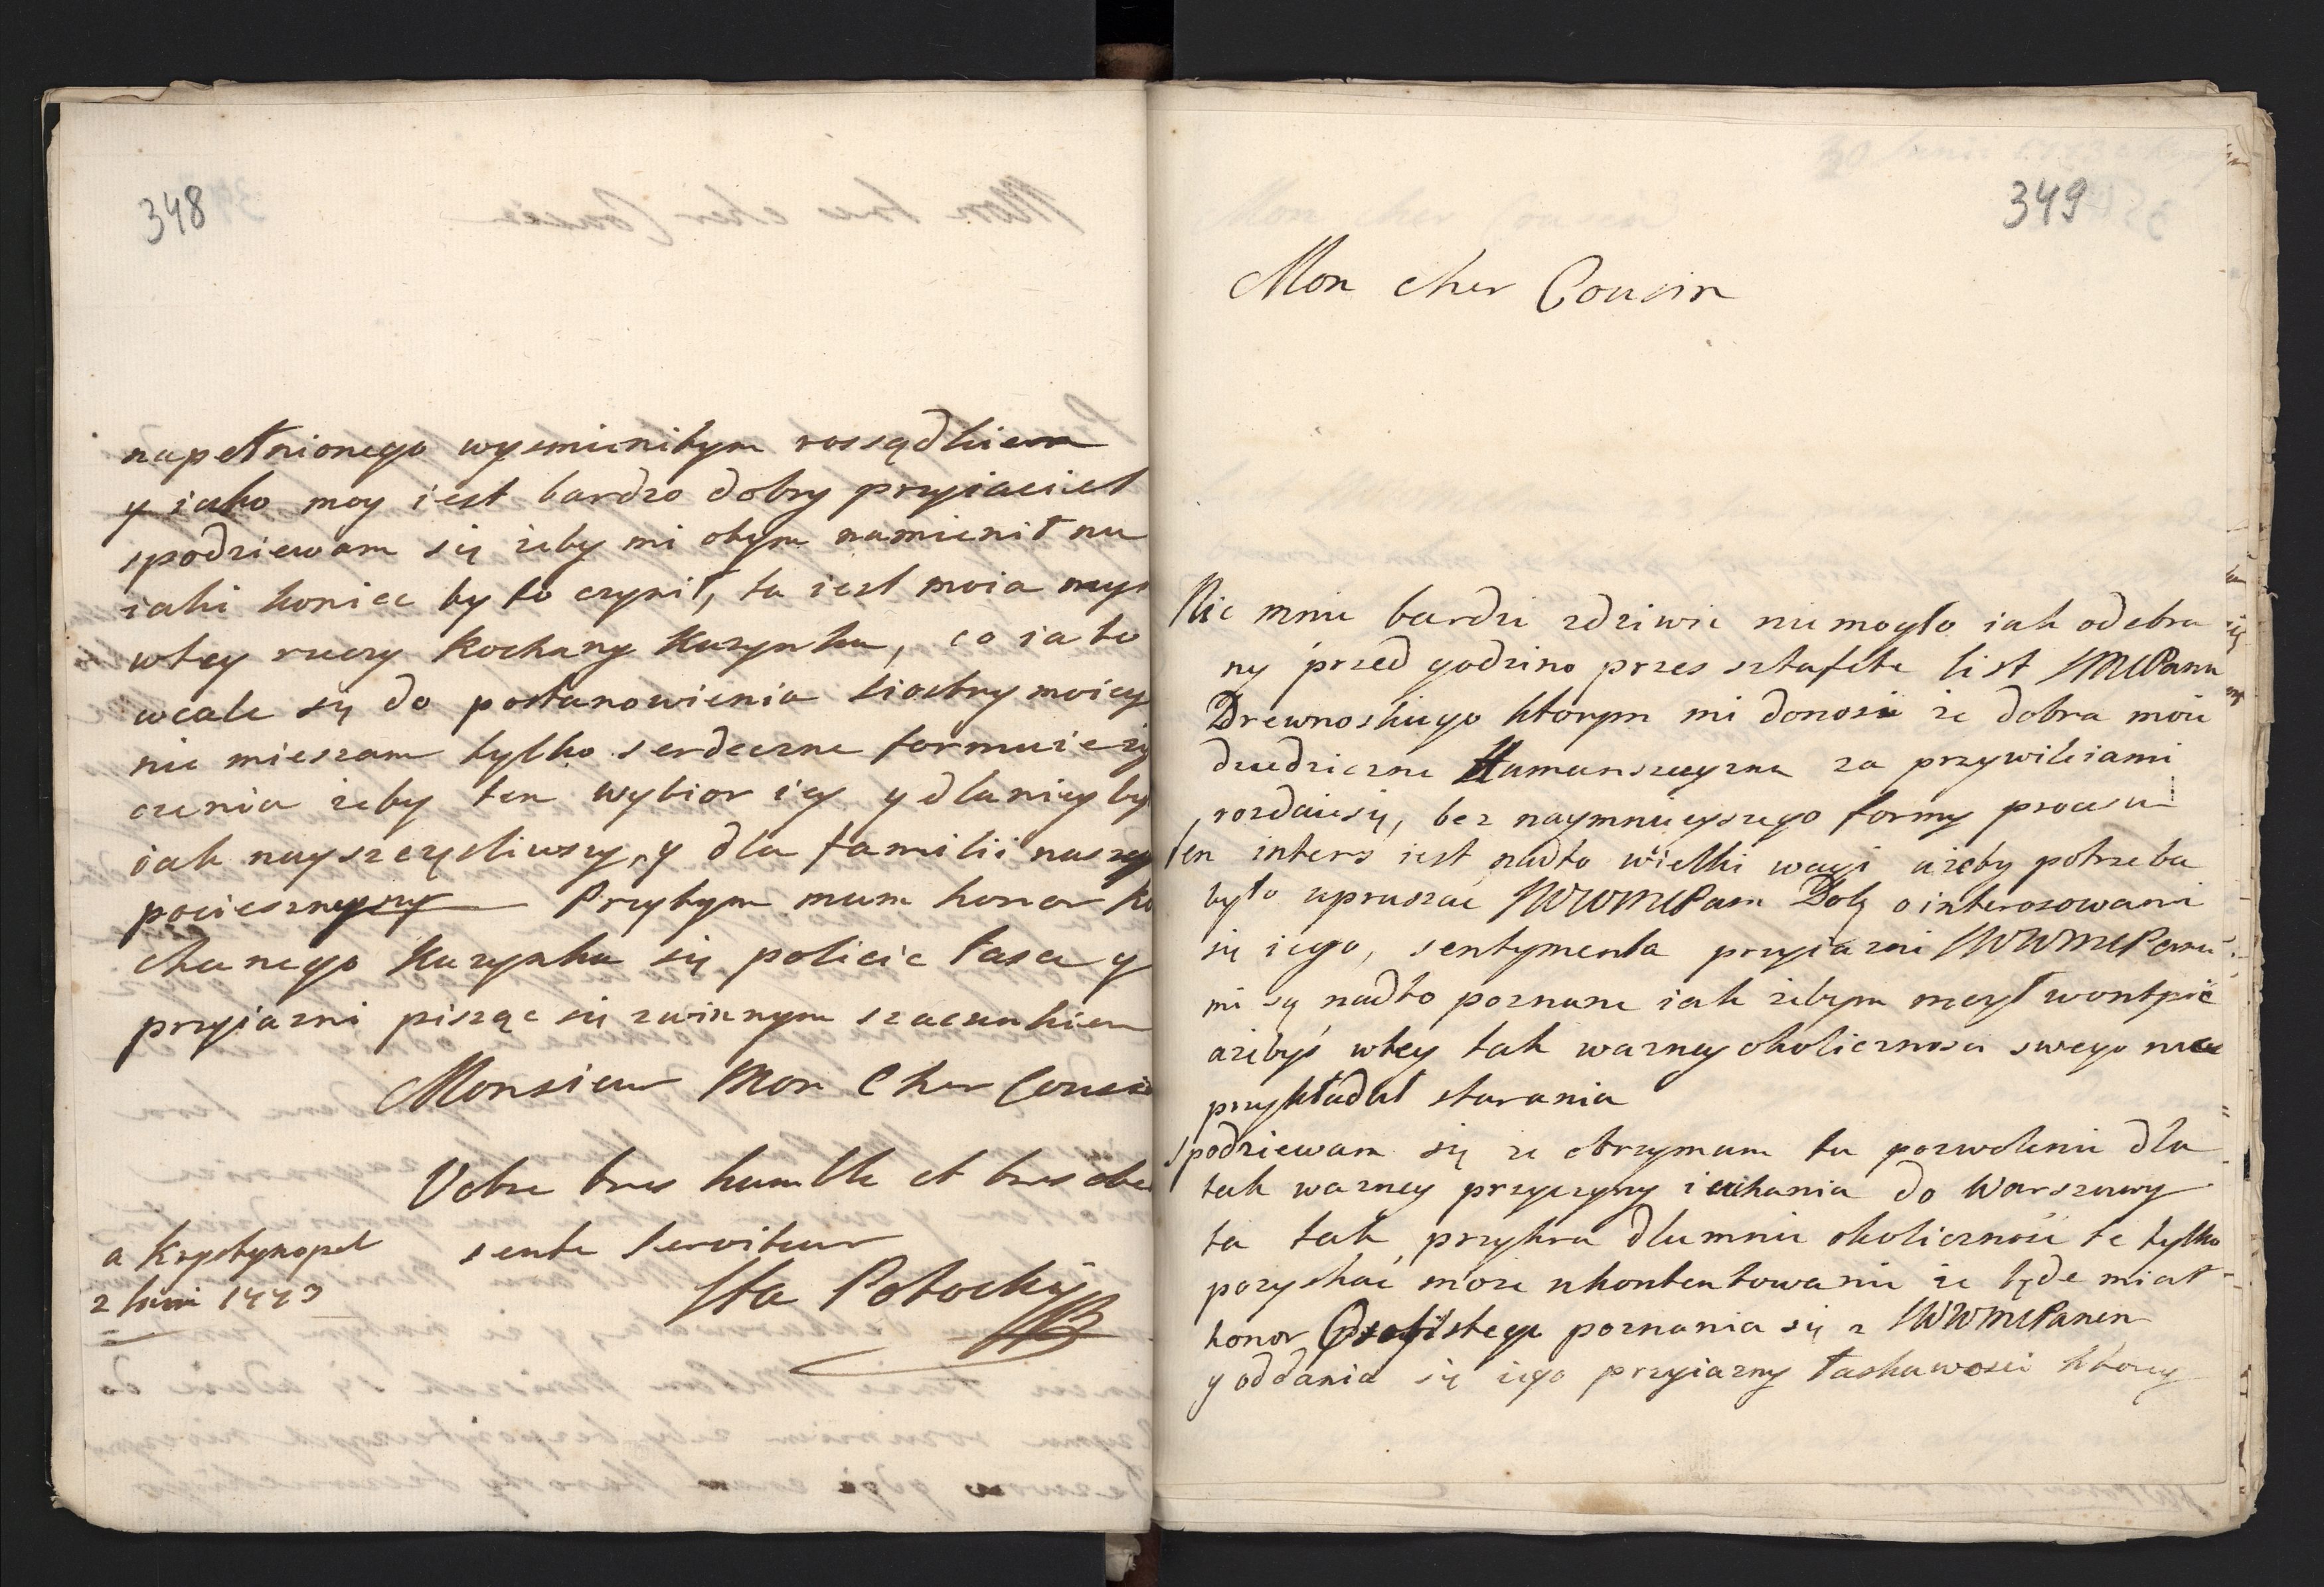 348
napełnionego wysmienitym rossądkiem
y iako moy iest bardzo dobry przyiaciel
spodziewam się żeby mi otym namienił na
iaki koniec by to czynił, ta iest moia mys
wtey rzeczy Kochany Kuzynku, co ia to
wcale się do postanowienia Siostry moiey
nie mieszam tylko serdeczne formuie ży
czenia żeby ten wybior iey y dlaniey by
iak nayszczęsliwszy, y dla familii naszey
pocieszneyszy Przytym mam honor Ko
chanego Kuzynka się policic łasce y
przyiazni pisząc się zwinnym szacunkiem
Monsieur Mon Cher Cousin
Votre tres humble et tres obei
sente Serviteur
a Krystynopol
2 Iuni 1773
Sta Potocky
349
Mon cher Cousin
Nic mnie bardzi zdziwic niemogło iak odebra
ny przed godzino przes sztafete list JMCPana
Drewnoskiego ktorym mi donosi że dobra moie
dziedziczne Humanszczyzna za przywileiami
rozdaiesię, bez naymnieyszego formy procesu
ten interes iest nadto wielki wagi ażeby potrzeba
było upraszac JWWMCPam Dob o interosowani
się iego, sentymenta przyiazni JWWMCPana
mi są nadto poznane iak żebym mogł wontpic
ażebyś wtey tak wazney okolicznosci swego nie
przykładał starania
spodziewam się że otrzymam tu pozwolenie dla
tak wazney przyczyny iechania do Warszawy
ta tak przykra dlamnie okolicznosc te tylko
pozyskac może ukontentowanie że będe miał
honor Osobistego poznania się z JWWMCPanen
y oddania się iego przyiazny łaskawosci ktorey